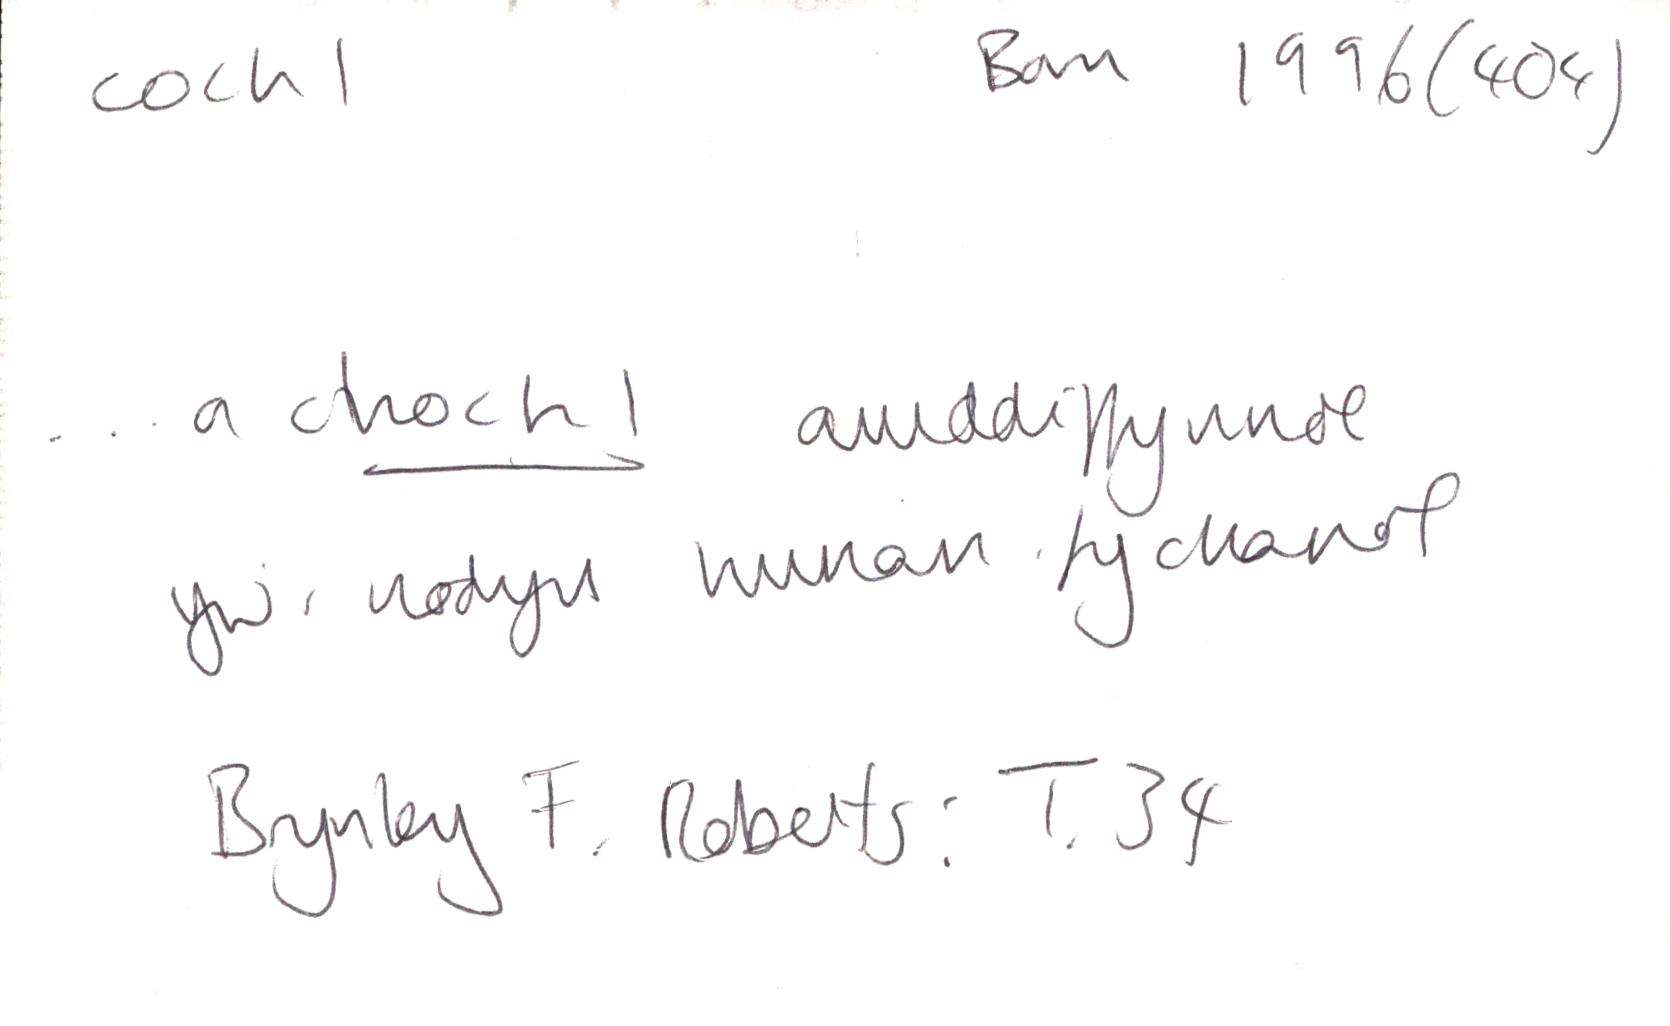 cochl Barn 1996 (404)
... a chochl amddiffynnol
yw'r nodyn hunan fychanol
Brynley F. Roberts: T. 34